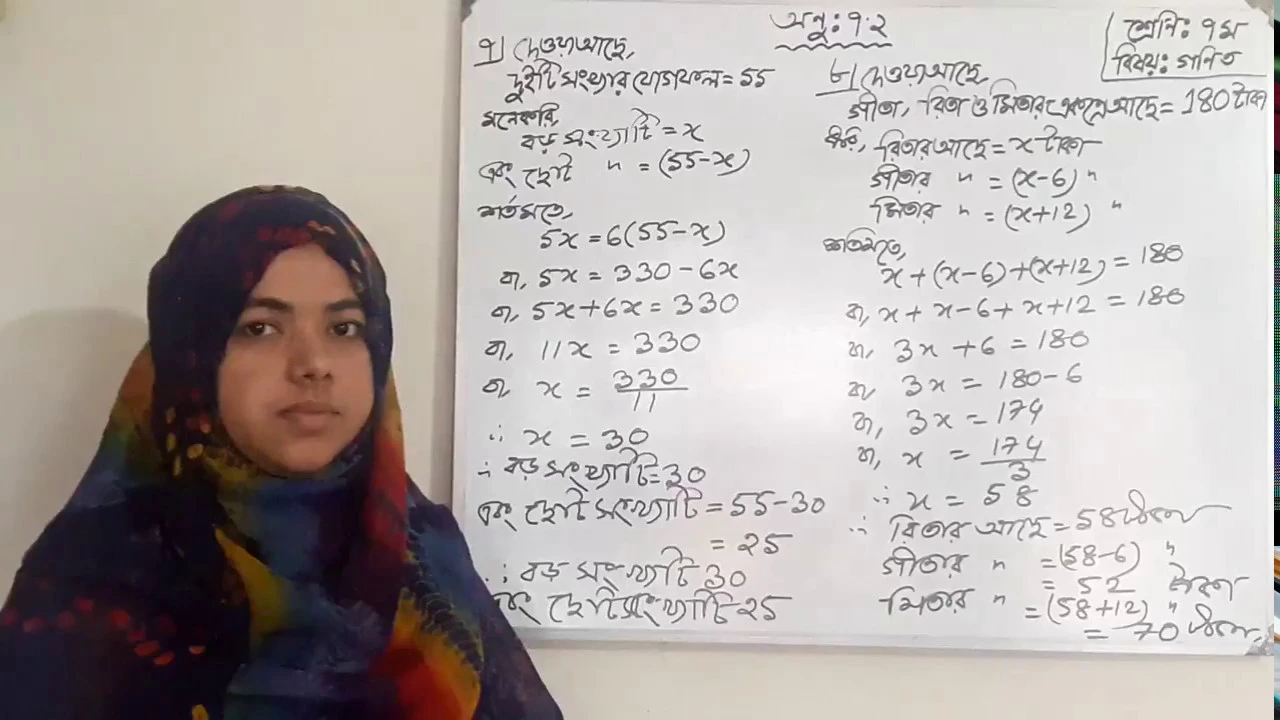 অনু: ৭.২
শ্রেনি: ৭ম
বিষয়: গনিত
৭) দেওয়া আছে,
দুইটি সংখ্যার যোগফল = 55
মনেকরি,
বড় সংখ্যাটি = x
এবং ছোট " = (55-x)
শর্তমতে,
5x = 6(55-x)
বা, 5x = 330 - 6x
বা, 5x + 6x = 330
বা, 11x = 330
বা, x = 330/11
∴ x = 30
∴ বড় সংখ্যাটি = 30
এবং ছোট সংখ্যাটি = 55 - 30
= 25
∴ বড় সংখ্যাটি 30
এবং ছোট সংখ্যাটি 25
৮) দেওয়া আছে,
গীতা, রিতা ও মিতার একত্রে আছে = 180 টাকা
ধরি, রিতার আছে = x টাকা
গীতার " = (x-6) "
মিতার " = (x+12) "
শর্তমতে,
x + (x-6) + (x+12) = 180
বা, x + x - 6 + x + 12 = 180
বা, 3x + 6 = 180
বা, 3x = 180 - 6
বা, 3x = 174
বা, x = 174/3
∴ x = 58
∴ রিতার আছে = 58 টাকা
গীতার " = (58-6) "
= 52 টাকা
মিতার " = (58+12) "
= 70 টাকা